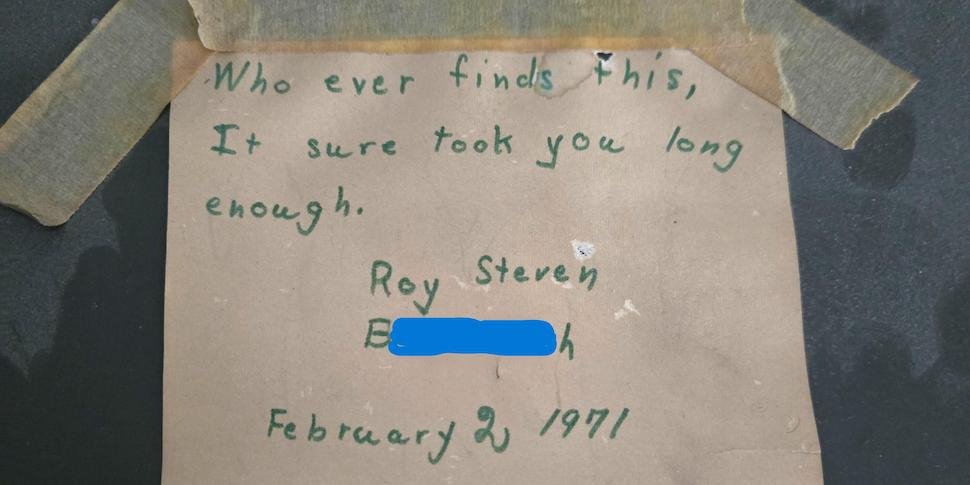 Who ever finds this,
It sure took you long
enough.
Roy Steven
February 2, 1971